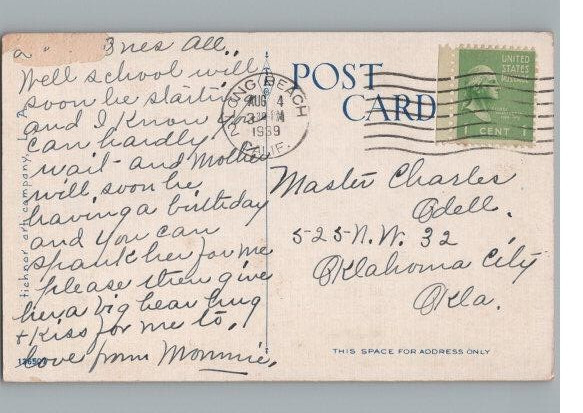 ones All..
Well school will
soon be starting
and I know you
can hardly
wait and Mother
will soon be
having a birthday
and you can
spank her for me
please then give
her a big bear hug
+ Kiss for me to,
love from Mommie.
tichnor art company, L. A.
LONG BEACH
AUG 4
1939
CALIF.
POST
CARD
UNITED
STATES
1 CENT 1
Master Charles
Odell.
525 N.W. 32
Oklahoma City
Okla.
THIS SPACE FOR ADDRESS ONLY